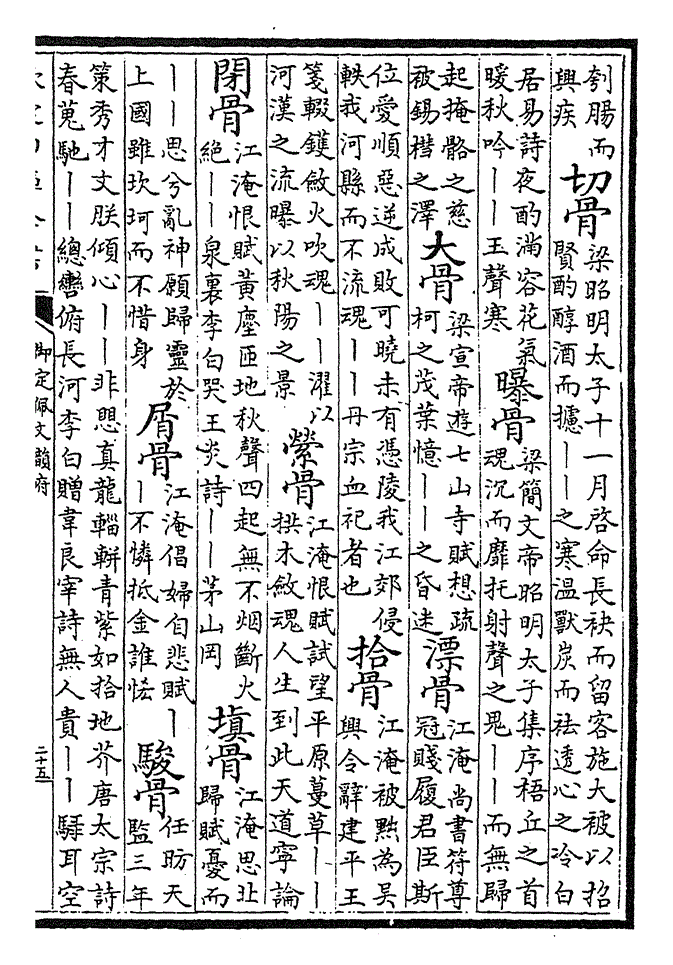 刳腸而
興疾
切骨
梁昭明太子十一月啓命長袂而留客施大被以招
賢酌醇酒而攄丨丨之寒温獸炭而祛透心之冷白
居易詩夜酌滿容花氣
暖秋吟丨丨玉聲寒
曝骨
梁簡文帝昭明太子集序梧丘之首
魂沉而靡托射聲之鬼丨丨而無歸
起掩骼之慈
被錫槥之澤
大骨
梁宣帝遊七山寺賦想疏
柯之茂葉憶丨丨之昏迷
漂骨
江淹尚書符尊
冠賤履君臣斯
位愛順惡逆成敗可曉未有憑陵我江郊侵
軼我河縣而不流魂丨丨丹宗血祀者也
拾骨
江淹被黜為吳
興令辭建平王
箋輟鑊斂火吹魂丨丨濯以
河漢之流曝以秋陽之景
縈骨
江淹恨賦試望平原蔓草丨丨
拱木斂魂人生到此天道寧論
閉骨
江淹恨賦黃塵匝地秋聲四起無不烟斷火
絶丨丨泉裏李白哭王炎詩丨丨茅山岡
塡骨
江淹思北
歸賦憂而
丨丨思兮亂神願歸靈於
上國雖坎坷而不惜身
屑骨
江淹倡婦自悲賦丨
丨不憐抵金誰恡
駿骨
任昉天
監三年
策秀才文朕傾心丨丨非懼真龍輜軿青紫如拾地芥唐太宗詩
春蒐馳丨丨總轡俯長河李白贈韋良宰詩無人貴丨丨騄耳空
御定佩文韻府
二十五